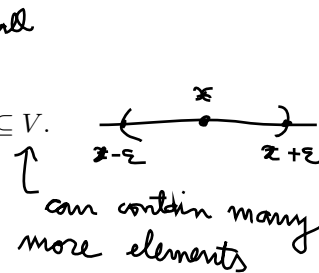 ⊆ V.
x
x-ε x+ε
can contain many
more elements